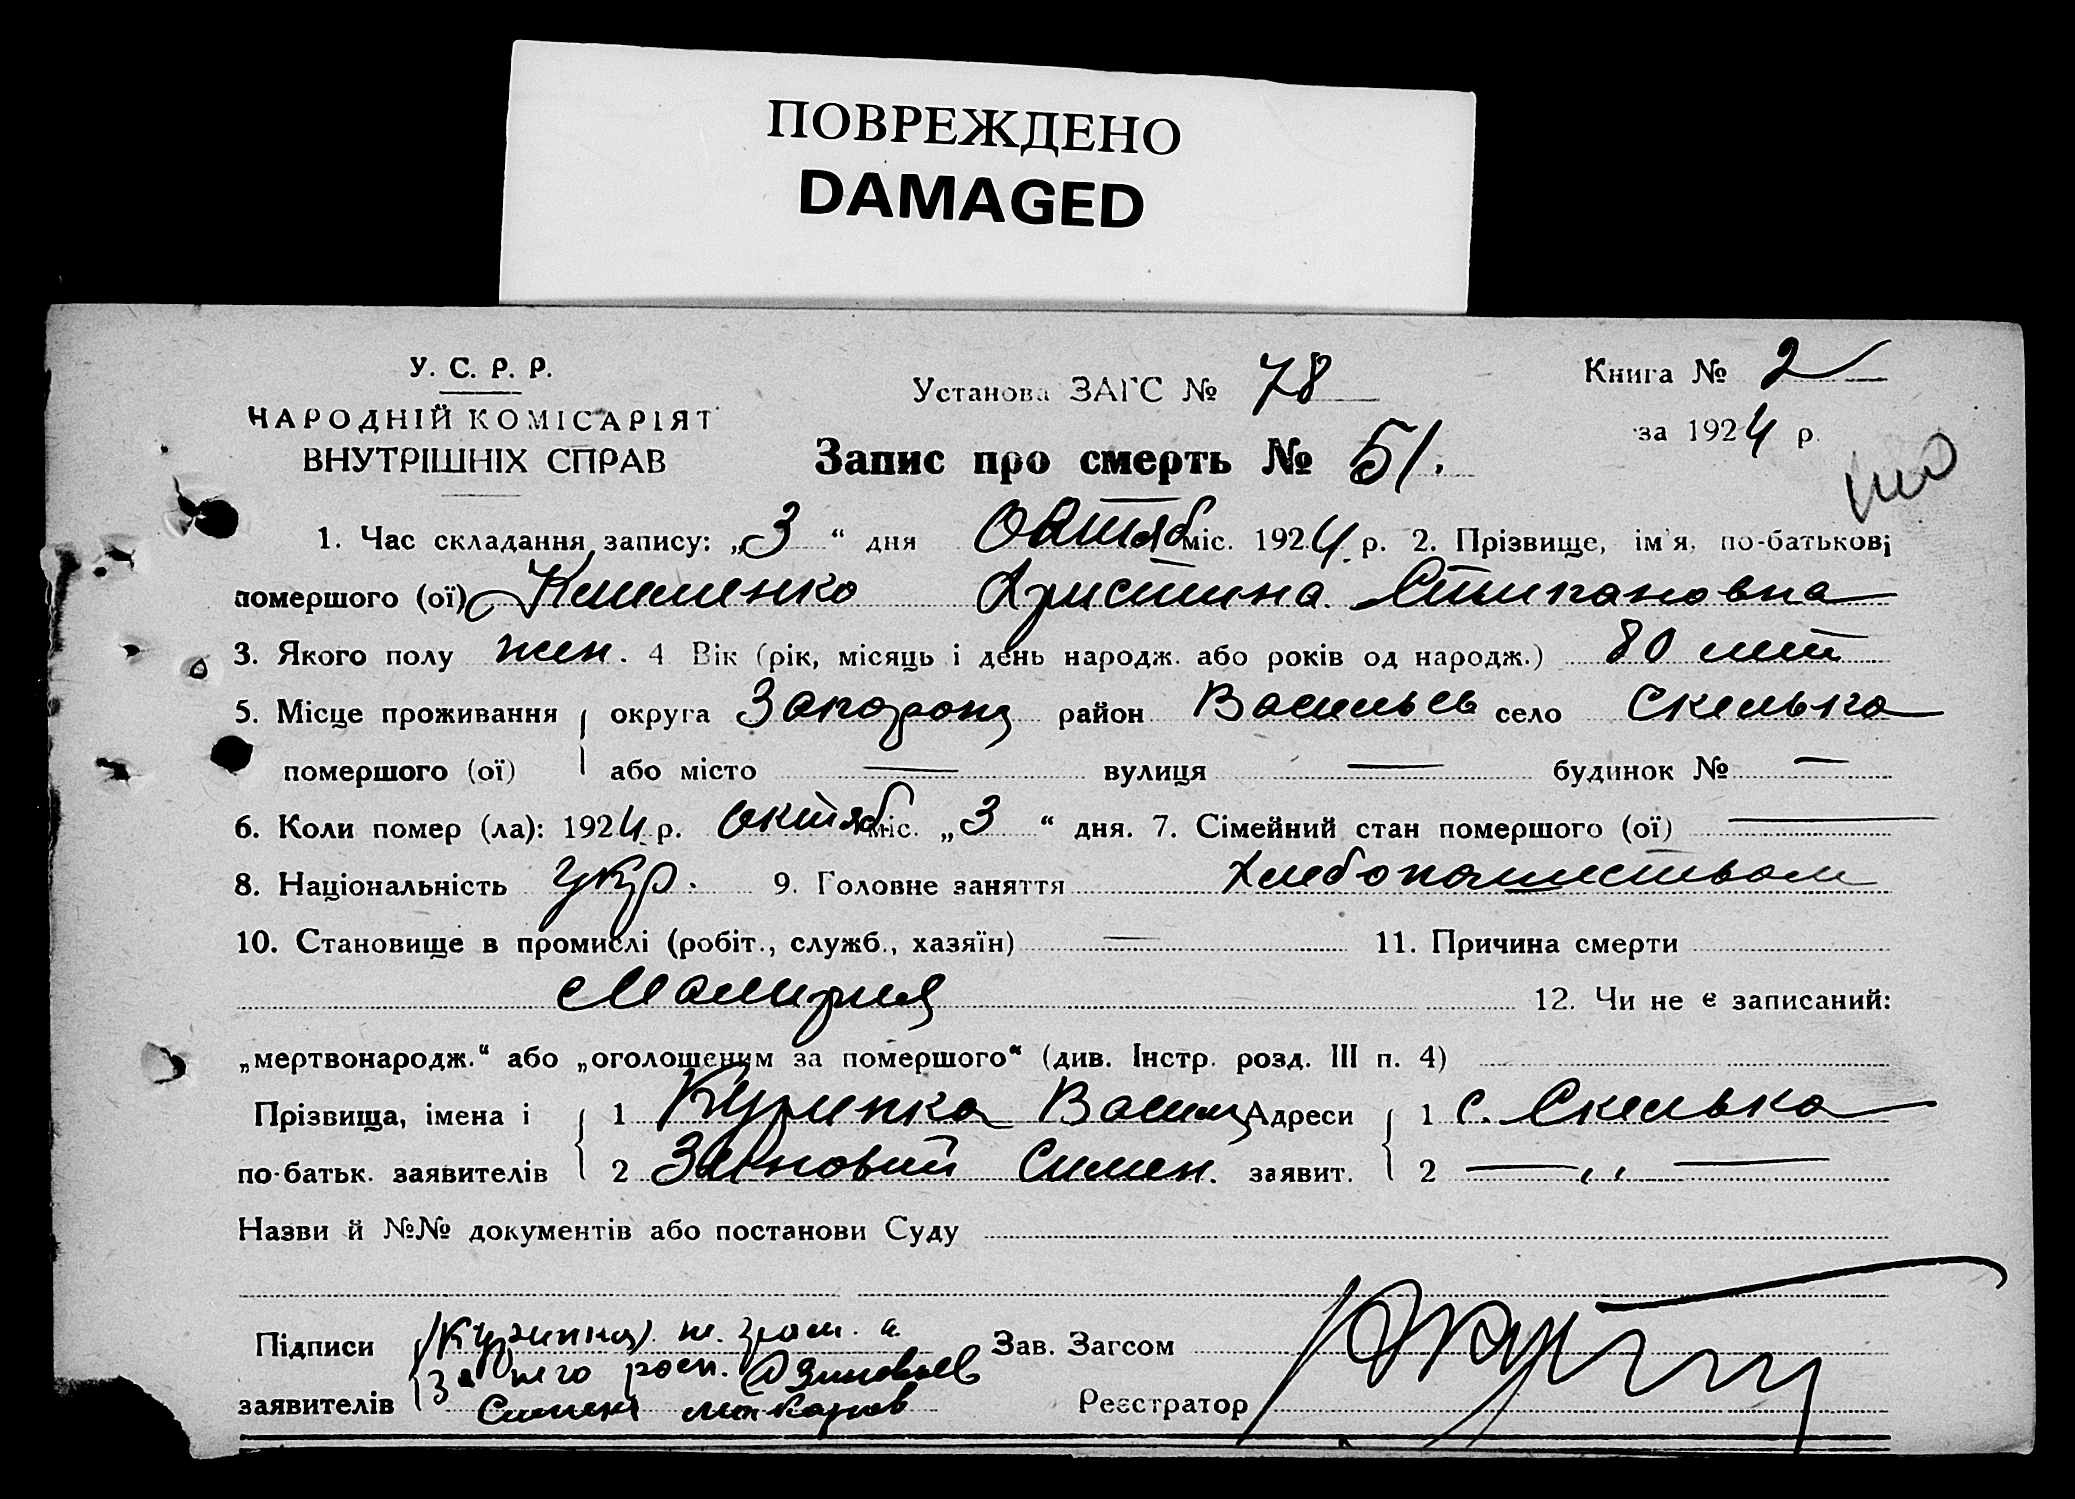 ПОВРЕЖДЕНО
DAMAGED
У. С. Р. Р.
НАРОДНІЙ КОМІСАРІЯТ
ВНУТРІШНІХ СПРАВ
Установа ЗАГС № 78
Книга № 2
за 1924 р.
Запис про смерть № 51.
1. Час складання запису: „3“ дня Октяб міс. 1924 р. 2. Прізвище, ім'я, по-батькові
помершого (ої) Клименко Христина Стипановна
3. Якого полу жен. 4 Вік (рік, місяць і день народж. або років од народж.) 80 лет
5. Місце проживання округа Запорож район Васильев село Скелька
помершого (ої) або місто — вулиця — будинок № —
6. Коли помер (ла): 1924 р. октяб міс. „3“ дня. 7. Сімейний стан помершого (ої) —
8. Національність укр. 9. Головне заняття Хлебопашеством
10. Становище в промислі (робіт., служб., хазяїн) — 11. Причина смерти
Малирия 12. Чи не є записаний:
„мертвонародж.“ або „оголошеним за помершого“ (див. Інстр. розд. III п. 4)
Прізвища, імена і 1 Курипка Васил Адреси 1 с. Скелька
по-батьк. заявителів 2 Зиновий Симен. заявит. 2 — „ —
Назви й №№ документів або постанови Суду
Підписи Курипка Зав. Загсом
за него расп.
заявителів Реєстратор